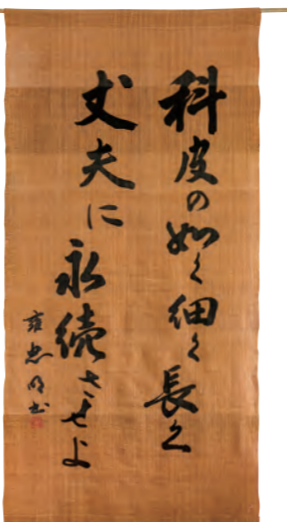 科皮の如く細く長く
丈夫に永続させよ
雍忠明书